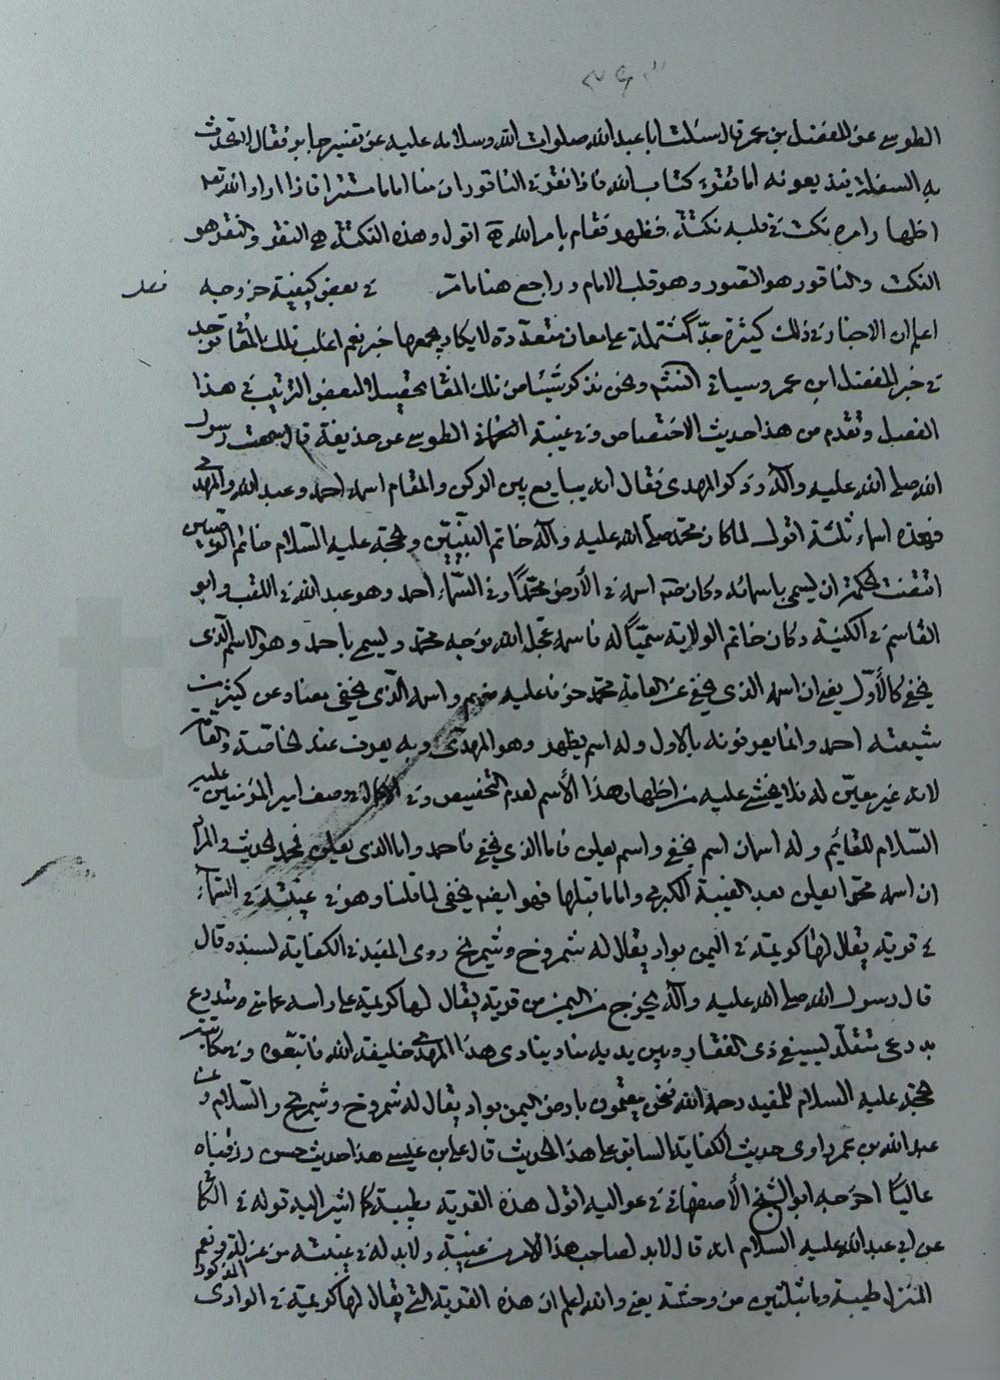 الطوسي عن المفضل بن عمر قال سئلت ابا عبد الله صلوات الله وسلامه عليه عن تفسير جابر فقال لا تحدث
به السفلة فيذيعونه اما تقرء كتاب الله فاذا نقر في الناقور ان منا اماما مستترا فاذا اراد الله تع
اظهار امره نكت في قلبه نكتة فظهر فقام بامر الله اقول وهذه النكتة هي النقر والنقر هو
النكت والناقور هو الصور وهو قلب الامام وراجع هنا مامر في بعض كيفية خروجه فصل
اعلم ان الاخبار في ذلك كثيرة جدّا مشتملة على معان متعددة لا يكاد يجمعها خبر نعم اغلب تلك توجد
في خبر المفضل ابن عمر وسياتي ونحن نذكر شيئا من تلك لبعض الترتيب في هذا
الفصل وتقدم من هذا حديث الاختصاص وفي غيبة الطوسي عن حذيفة قال سمعت رسول
الله صلى الله عليه وآله وذكر المهدي فقال انه يبايع بين الركن والمقام اسمه احمد وعبد الله والمهدي
فهذه اسماء ثلثة اقول لما كان محمد صلى الله عليه وآله خاتم النبيّين والحجة عليه السلام خاتم الوصيين
اقتضت الحكمة ان يسمى باسمائه وكان اسمه في الأرض محمدًا وفي السّماء احمد وهو عبد الله في اللقب وابو
القاسم في الكنية وكان خاتم الولاية سميًا له فاسمه عجل الله فرجه محمد ويسمى باحمد وهو الاسم الّذي
يخفى كالأوّل يعني ان اسمه الذي يخفى عن العامة محمد خوفا عليه منهم واسمه الّذي يخفى معناه عن كثير من
شيعته احمد وانما يعرفونه بالاول وله اسم يظهر وهو المهديّ وبه يعرف عند الخاصة والعامة
لانه غير معيّن له فلا يخشى عليه من اظهار هذا الأسم لعدم التخصيص وفي وصف امير المؤمنين عليه
السّلام للقائيم وله اسمان اسم يخفى واسم يعلن فاما الذي يخفى فاحمد واما الذي يعلن فمحمد الحديث والمراد
ان اسمه محمد يعلن بعد الغيبة الكبرى واما ما قبلها فهو ايضا يخفى لما قلنا وهو في غيبته في
في قرية يقال لها كريمة في اليمن بواد يقال له شمروخ وشمريخ روى المفيد في الكفاية بسنده قال
قال رسول الله صلى الله عليه وآله يخرج من اليمن من قرية يقال لها كريمة على راسه عمامة متدرع
بدرعي متقلّد بسيفي ذي الفقار وبين يديه مناد ينادي هذا المهدي خليفة الله فاتبعوه وفي مكاتبة
الحجة عليه السلام للمفيد رحمه الله نحن مقيمون بارض اليمن بواد يقال له شمروخ وشمريخ والسّلام وعن
عبد الله بن عمر راوي حديث الكفاية السابق على هذا الحديث قال علي بن عيسى هذا حديث حسن رزقناه
عاليًا اخرجه ابو الشيخ الأصفهاني في عواليه اقول هذه القرية طيبة كما اشير اليه قوله في
عن ابي عبد الله عليه السلام انه قال لابد لصاحب هذا الامر من غيبة ولابد له في غيبته من عزلة ونعم
المنزل طيبة وما بثلثين من وحشة يعني والله اعلم ان هذه القرية التي يقال لها كريمة في الوادي المذكور